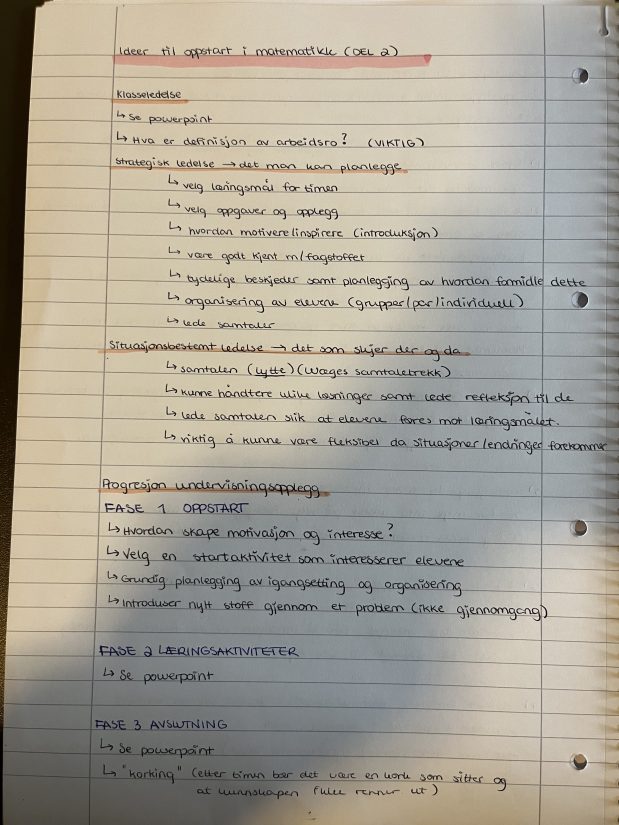 Ideer til oppstart i matematikk (DEL 2)
Klasseledelse
↳ Se powerpoint
↳ Hva er definisjon av arbeidsro? (VIKTIG)
Strategisk ledelse → det man kan planlegge
↳ velg læringsmål for timen
↳ velg oppgaver og opplegg
↳ hvordan motivere/inspirere (introduksjon)
↳ være godt kjent m/fagstoffet
↳ tydelige beskjeder samt planlegging av hvordan formidle dette
↳ organisering av elevene (grupper/par/individuell)
↳ lede samtaler
Situasjonsbestemt ledelse → det som skjer der og da
↳ samtalen (Lytte) (Wæges samtaletrekk)
↳ kunne håndtere ulike løsninger samt lede refleksjon til de
↳ lede samtalen slik at elevene føres mot læringsmålet.
↳ viktig å kunne være fleksibel da situasjoner/endringer forekommer
Progresjon undervisningsopplegg
FASE 1 OPPSTART
↳ Hvordan skape motivasjon og interesse?
↳ Velg en startaktivitet som interesserer elevene
↳ Grundig planlegging av igangsetting og organisering
↳ Introduser nytt stoff gjennom et problem (ikke gjennomgang)
FASE 2 LÆRINGSAKTIVITETER
↳ Se powerpoint
FASE 3 AVSLUTNING
↳ Se powerpoint
↳ "korking" (etter timen bør det være en kork som sitter og
at kunnskapen ikke renner ut)